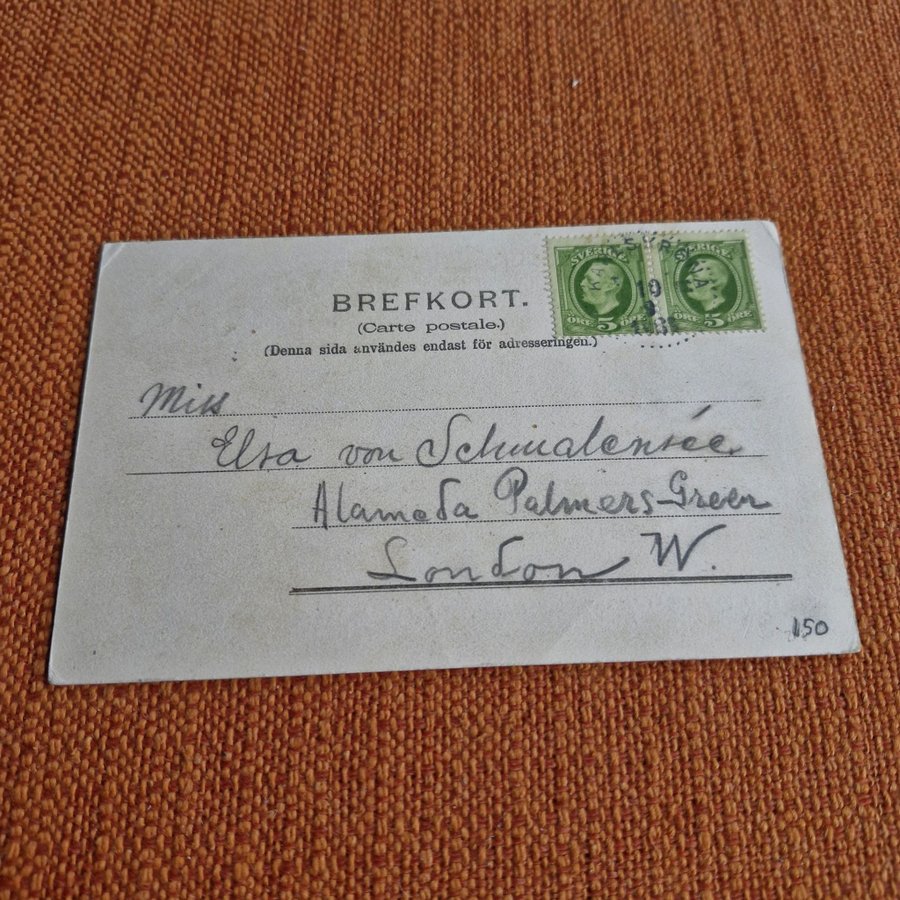 BREFKORT.
(Carte postale.)
(Denna sida användes endast för adresseringen.)
SVERIGE
5 ÖRE ÖRE
SVERIGE
ÖRE 5 ÖRE
19
Miss
Elsa von Schmalensée
Alameda Palmers Green
London W.
150